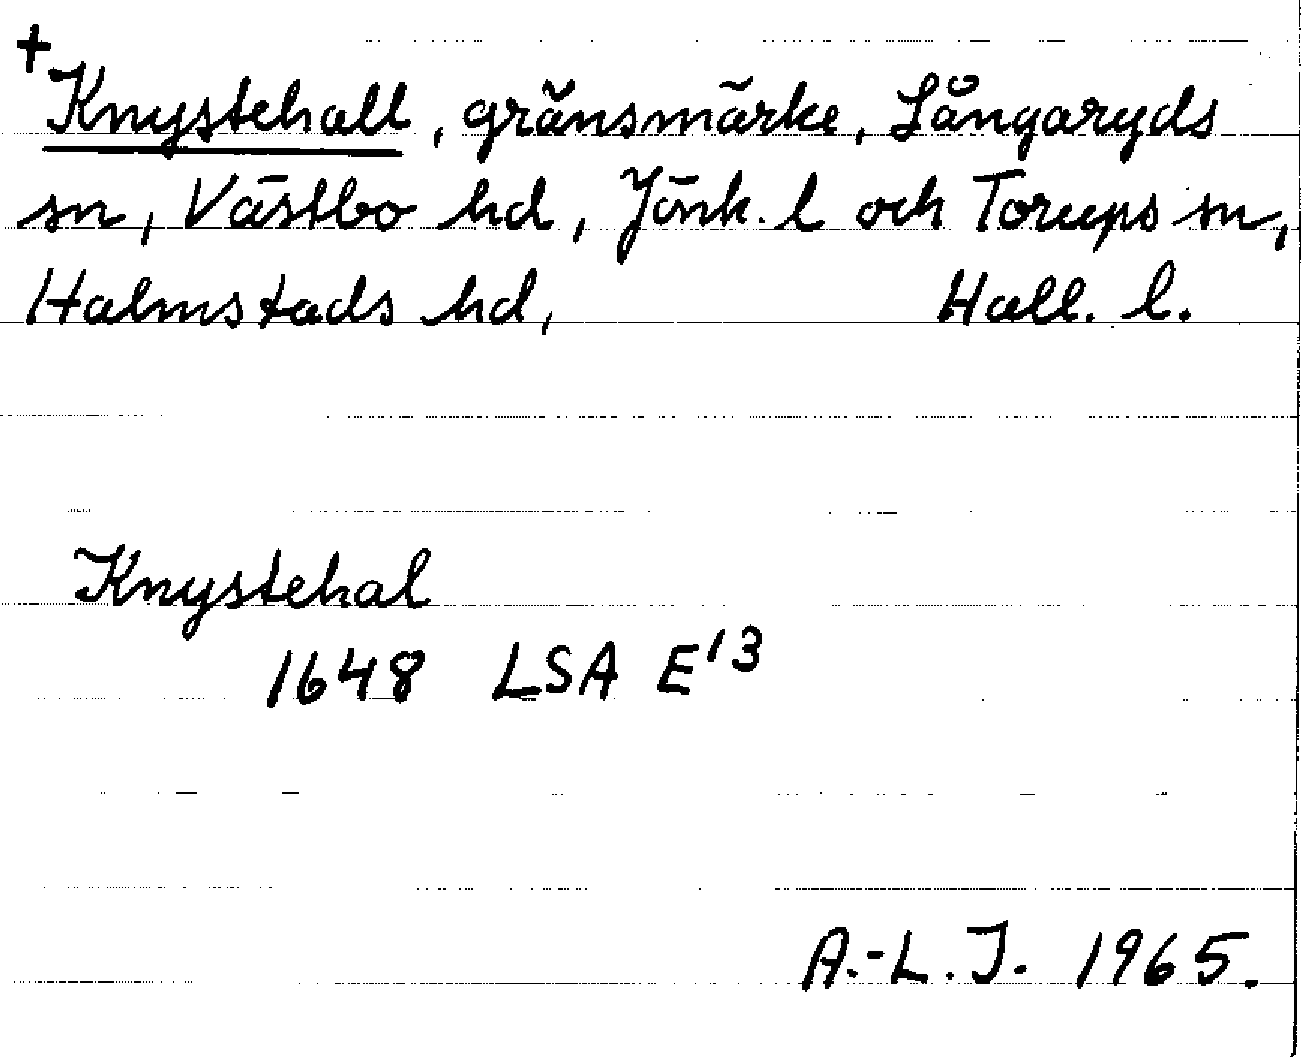 +
Knystehall, gränsmärke, Långaryds
sn, Västbo hd, Jönk. l och Torups sn,
Halmstads hd, Hall. l.
Knystehal
1648 LSA E13
A.-L. J. 1965.